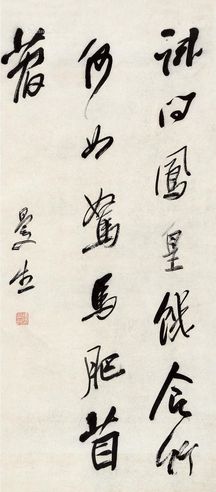 試問鳳皇饑食竹
何如駑馬肥苜
蓿
曼生